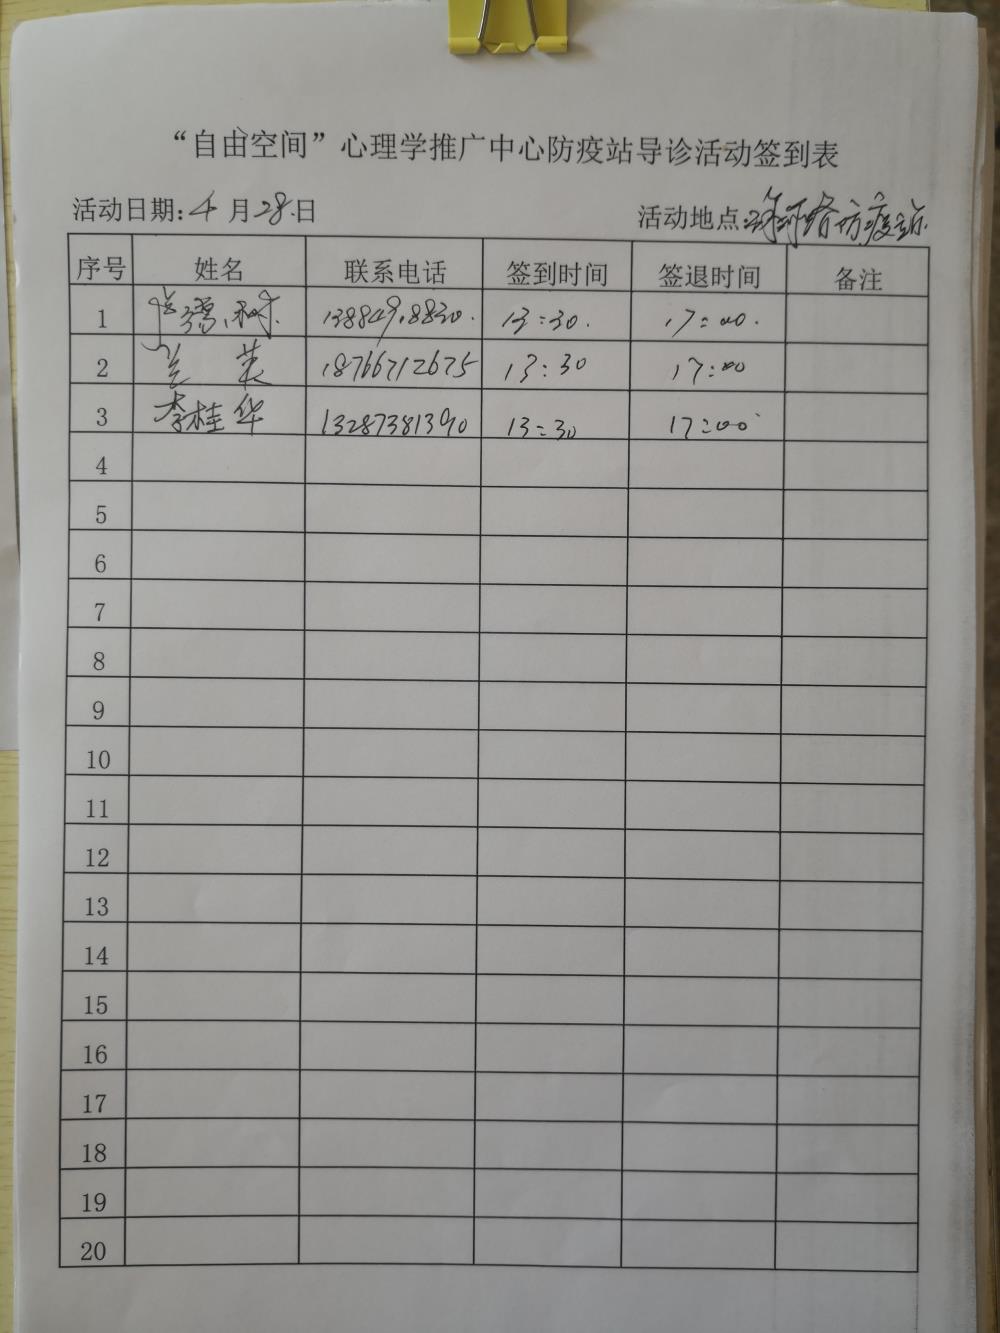 “自由空间”心理学推广中心防疫站导诊活动签到表
活动日期:4月28日 活动地点: 防疫站
序号 姓名 联系电话 签到时间 签退时间 备注
1 13:30. 17:00.
2 兰英 18766712675 13:30 17:00
3 李桂华 13287381390 13:30 17:00
4
5
6
7
8
9
10
11
12
13
14
15
16
17
18
19
20